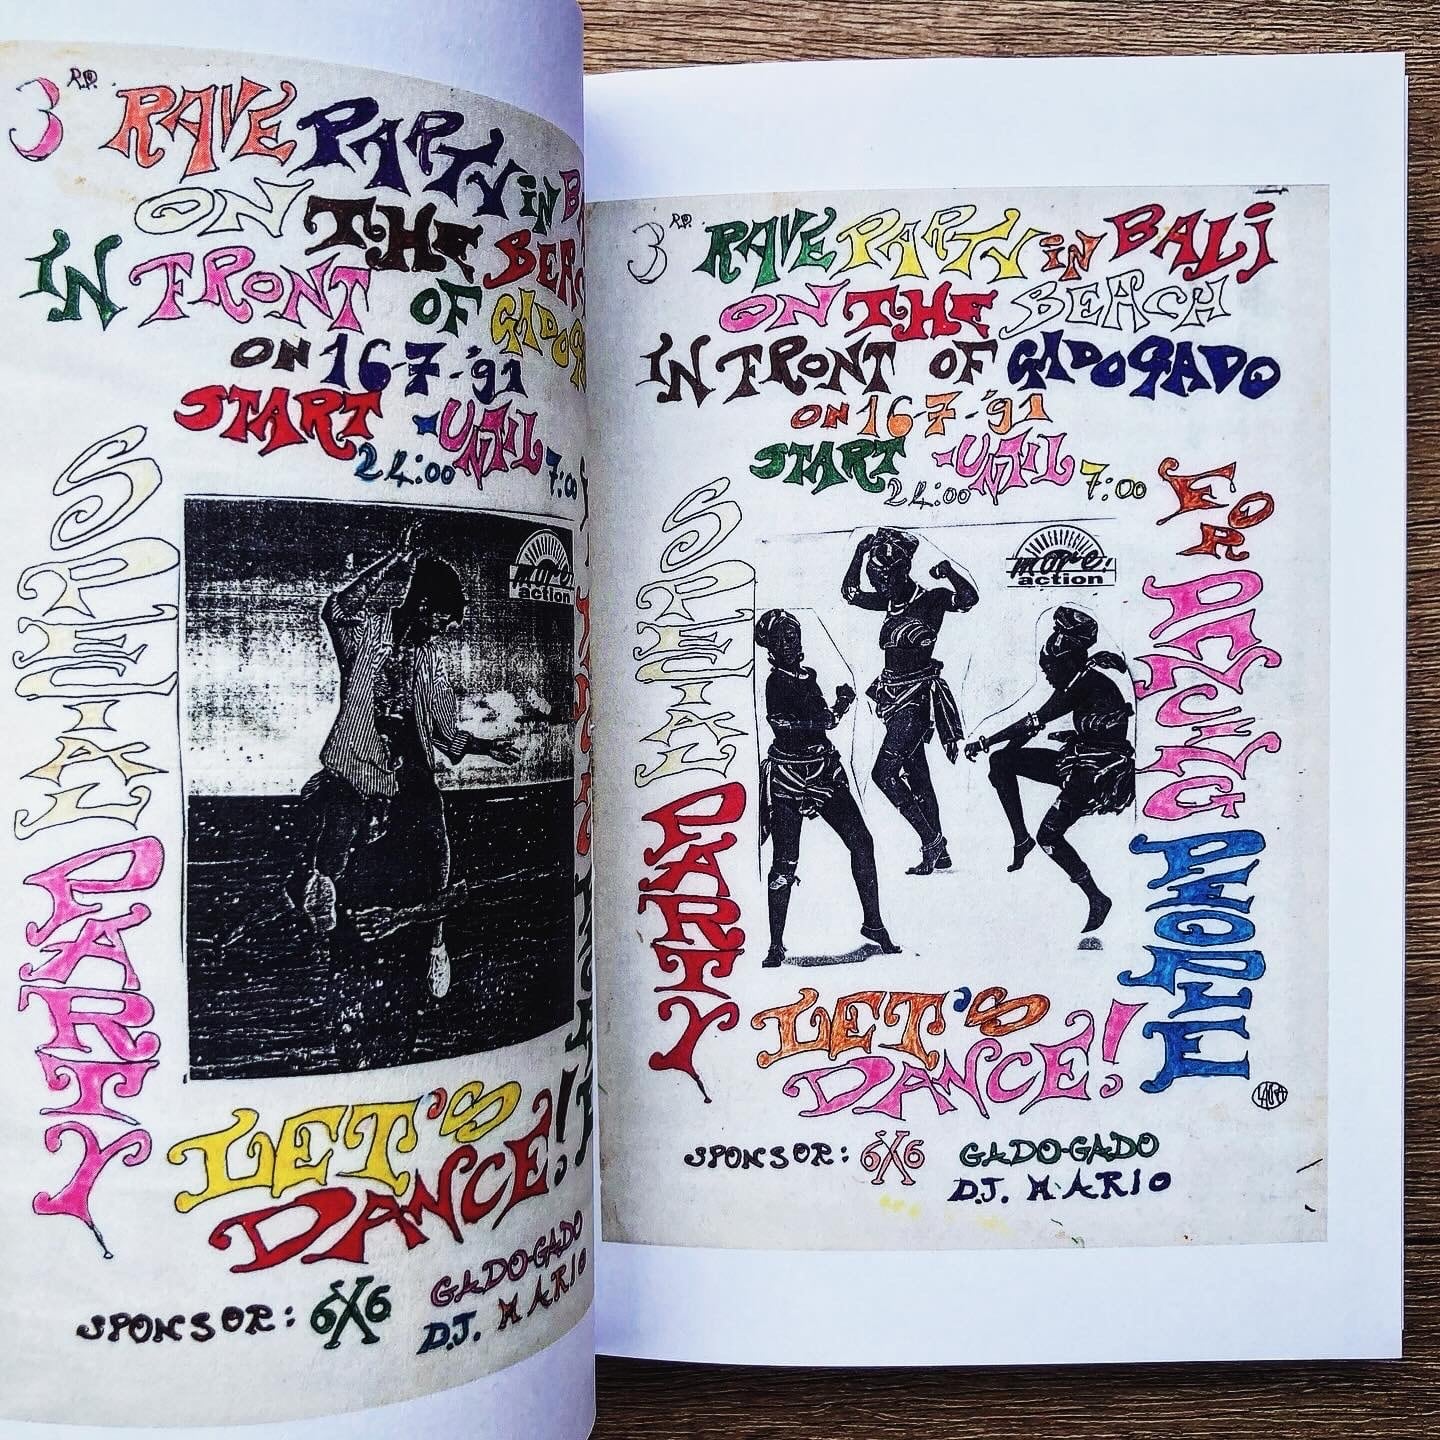 3 R.D. RAVE PARTY iN B
ON THE BEAC
IN FRONT OF GADOGA
ON 16-7-'91
START -UNTIL
24:00 7:00
SPECIAL PARTY
more.
action
LET'S
DANCE!
SPONSOR: 6X6 GADO-GADO
D.J. MARIO
3 R.D. RAVE PARTY iN BALi
ON THE BEACH
IN FRONT OF GADOGADO
ON 16-7-'91
START -UNTIL
24:00 7:00
SPECIAL PARTY
more.
action
FOR DANCING PEOPLE
LET'S
DANCE!
SPONSOR: 6X6 GADO-GADO
D.J. MARIO